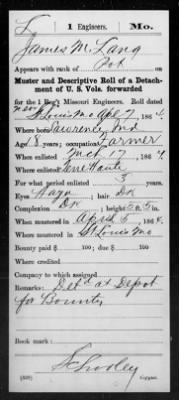 L 1 Engineers. Mo.
James M. Lang
Appears with rank of Pvt on
Muster and Descriptive Roll of a Detach-
ment of U. S. Vols. forwarded
for the 1 Reg't Missouri Engineers. Roll dated
St Louis Mo Apl 7, 1864.
Where born Lawrence, Ind
Age 18 years; occupation Farmer
When enlisted Mch 17, 1864
Where enlisted Terre Haute
For what period enlisted 3 years.
Eyes Hazel; hair Dk
Complexion Dk; height 5 ft. 5 in.
When mustered in April 5, 1864.
Where mustered in St Louis Mo
Bounty paid $ 100; due $ 100
Where credited
Company to which assigned
Remarks: Det'd at Depot
for Bounty
Book mark:
Copyist.